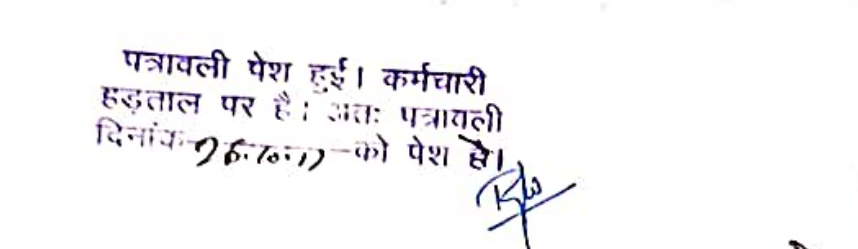 पत्रावली पेश हुई। कर्मचारी
हड़ताल पर है। अतः पत्रावली
दिनांक को पेश हो।